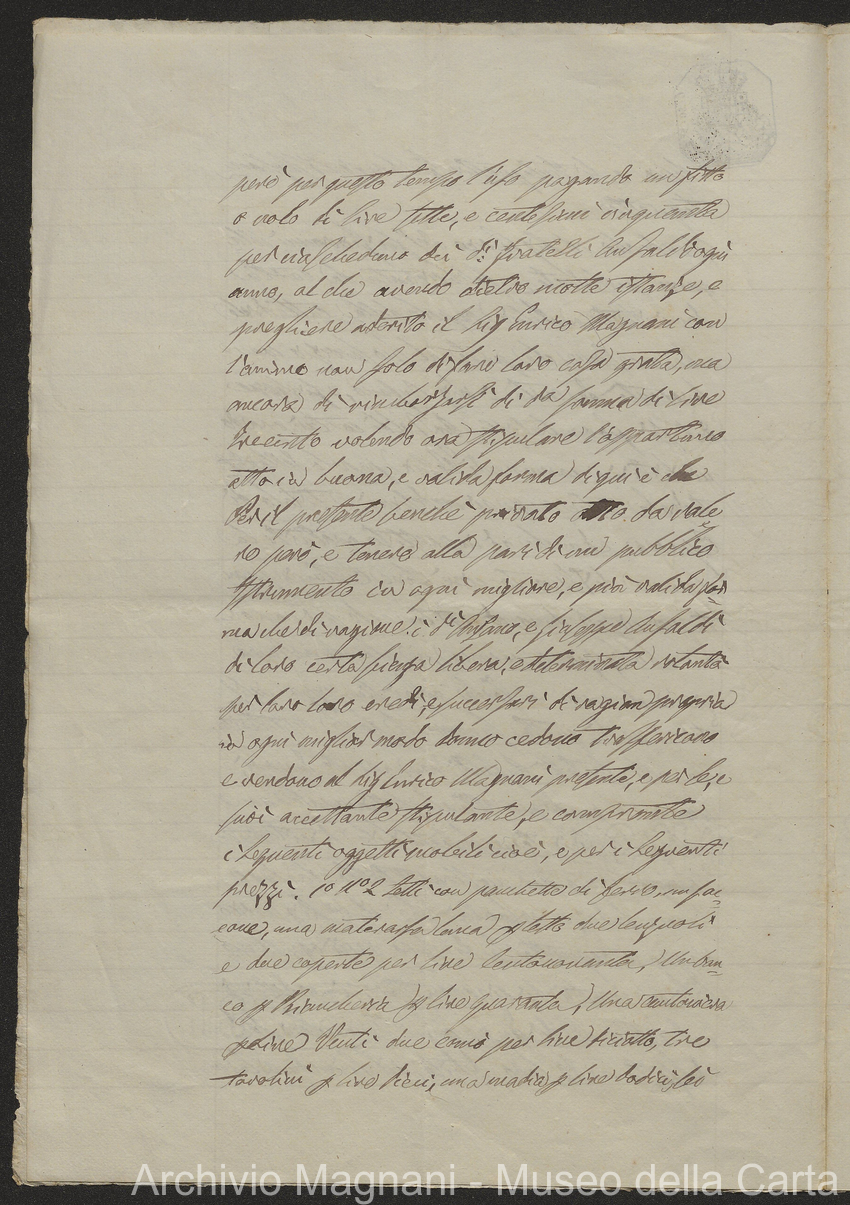 però per questo tempo l'uso pagando un fitto
o nolo di lire sette, e centesimi cinquanta
per ciascheduno dei di. fratelli Ansaldi ogni
anno, al che avendo dietro molte istanze, e
preghiere aderito il Sig Enrico Magnani con
l'animo non solo di fare loro cosa grata, ma
ancora di rimborsarsi di da somma di lire
trecento volendo ora stipulare l'opportuno
atto in buona, e valida forma di qui è che
Per il presente benché privato atto da vale
re però, e tenere alla pari di un pubblico
Istrumento in ogni migliore, e più valida for
ma che di ragione i di e Giuseppe Ansaldi
di loro certa scienza libera, e determinata volontà
per loro loro eredi, e successori di ragion propria
in ogni miglior modo danno cedono trasferiscono
e vendono al Sig Enrico Magnani presente, e per se, e
suoi accettante stipulante, e comprante
i seguenti oggetti mobili cioè, e per i seguenti
prezzi. 1o No 2 letti con panchette di ferro, un sac=
cone, una materassa lana p letto due lenzuoli
e due coperte per lire Centonovanta, Un ban=
co p Biancheria p lire quaranta, Una cantoniera
p lire Venti due comò per lire diciotto, tre
tavolini p lire dieci, una madia p lire dodici, sei
Archivio Magnani - Museo della Carta